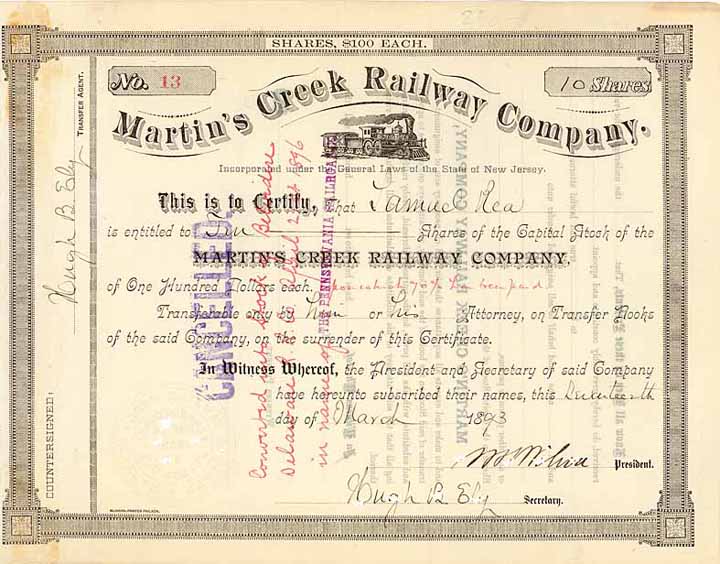 SHARES, $100 EACH.
No. 13
10 Shares
Martin's Creek Railway Company.
Incorporated under the General Laws of the State of New Jersey.
This is to Certify, that Samuel Rea
is entitled to Ten Shares of the Capital Stock of the
MARTIN'S CREEK RAILWAY COMPANY,
of One Hundred Dollars each. upon which 70% has been paid
Transferable only by him or his Attorney, on Transfer Books
of the said Company, on the surrender of this Certificate.
In Witness Whereof, the President and Secretary of said Company
have hereunto subscribed their names, this Seventeenth
day of March 1893
President.
Hugh B. Ely
Secretary.
COUNTERSIGNED:
Hugh B. Ely
TRANSFER AGENT.
CANCELLED.
Converted into stock of Belvidere
Delaware R.R. Co. April 22nd 1896
in name of THE PENNSYLVANIA RAILROAD